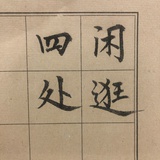 闲逛
四处